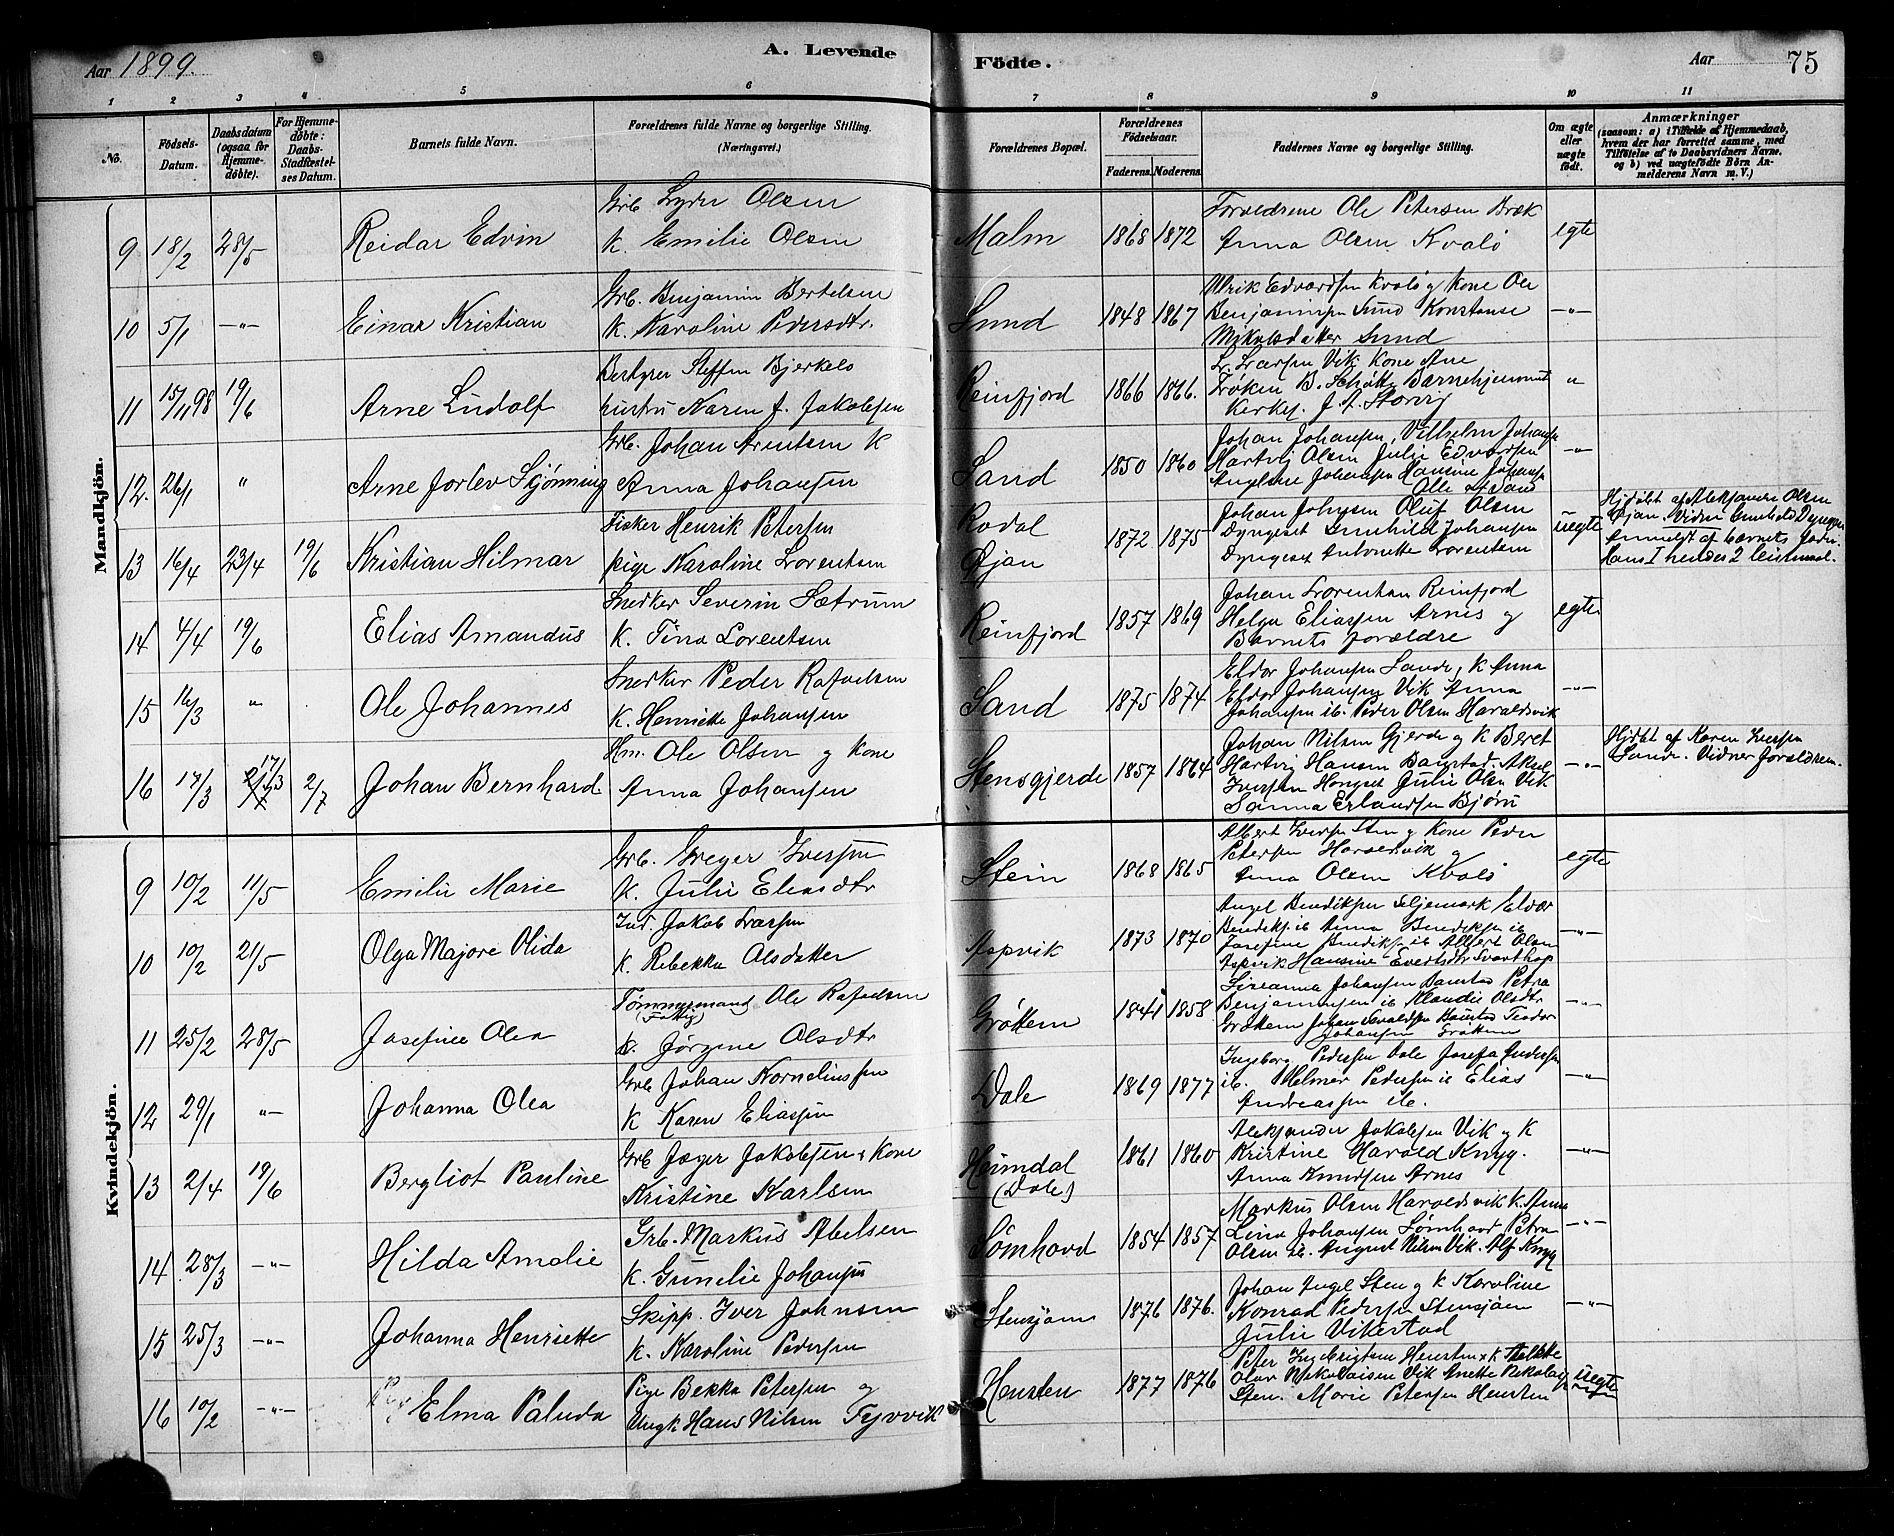 Aar 1899.
A. Levende
Födte.
Aar
75
1 2 3 4 5 6 7 8 9 10 11
No.
Födsels-Datum.
Daabsdatum (ogsaa for Hjemme-döbte).
For Hjemme-döbte: Daabs-Stadfæstel-ses Datum.
Barnets fulde Navn.
Forældrenes fulde Navne og borgerlige Stilling. (Næringsvei.)
Forældrenes Bopæl.
Forældrenes Födselsaar.
Faderens. Moderens.
Faddernes Navne og borgerlige Stilling.
Om ægte eller uægte födt.
Anmærkninger
(saasom: a) i Tilfælde af Hjemmedaab, hvem der har forrettet samme, med Tilföielse af to Daabsvidners Navne. og b) ved uægtefödte Börn An-melderens Navn m. V.)
Mandkjön.
9 18/2 28/5 Reidar Edvin
Grb Lyder Olsen
K. Emilie Olsen
Malm 1868 1872
Forældrene Ole Petersen Bræk
Anna Olsen Kvalö
egte
10 5/1 -"- Einar Kristian
Grb. Benjamin Bertelsen
K. Karoline Pedersdtr.
Sund 1848 1867
Ulrik Edvardsen Kvalö og Kone Ole
Benjaminsen Sund Konstanse
Mikalsdatter Sund
-"-
11 15/11 98 19/6 Arne Ludolf
Bestyrer Steffen Bjerkelo
hustru Karen J. Jakobsen
Reinfjord 1866 1866.
L. Larsen Vik Kone Ane
Fröken B. Schötte Barnehjemmet
Kirkes. J. A. Storvig
"
12. 26/1 " Arne Jorlev Skjönning
Grb. Johan Arentsen K
Anna Johansen
Sand 1850 1860
Johan Johansen, Vilhelm Johansen
Hartvig Olsen Julie Edvardsen
Angelsine Johansen Hansine Johansen
Alle af Sand
-"-
13 16/4 23/4 19/6 Kristian Hilmar
Fisker Henrik Petersen
pige Karoline Lorentsen
Rodal
Öjan
1872 1875
Johan Johnsen Oluf Olsen
Dyngeset Gunhild Johansen
Dyngeset Antonette Lorentsen
uegte
Hjdöbt af Aleksander Olsen
Öjan. Vidne Gunhild Dyngesen
Anmeldt af barnets fader.
Hans I hendes 2 leiermaal.
14 4/4 19/6 Elias Amandus
Snedker Severin Sætrum
K. Tina Lorentsen
Reinfjord 1857 1869
Johan Lorentsen Reinfjord
Helga Eliassen Arnes og
Barnets forældre
egte
15 16/3 " Ole Johannes
Snedker Peder Rafaelsen
K. Henriette Johansen
Sand 1875 1874
Eldor Johansen Sand, K Anna
Eldor Johansen Vik Anna
Johansen ib. Peder Olsen Haraldsvik
-"-
16 17/3 17/3 2/7 Johan Bernhard
Hm. Ole Olsen og Kone
Anna Johansen
Stensgjerde 1857 1864
Johan Nilsen Gjerde og K Beret
Hartvig Hansen Baustad. Aksel
Iversen Hongset Julie Olsen Vik
Sanna Erlandsen Björu
-"-
Hjdöbt af Karen Iversen
Sand. Vidner forældrene.
Kvindekjön.
9 10/2 11/5 Emilie Marie
Grb. Greger Iversen
K. Julie Eliasdtr
Stein 1868 1865
Albert Iversen Sten og Kone Peder
Petersen Horsedsvik og
Anna Olsen Kvalö
egte
10 10/2 21/5 Olga Majore Olida
Ind. Jakob Larsen
K. Rebekka Olsdatter
Aspvik 1873 1870
Angel Benediksen Seljemark Eldor
Bendiks. ib Anna Benediksen ib
Josefine Bendiks. ib Albert Olsen
Aspvik Hansine Evertsdtr Svarthop
-"-
11 25/2 28/5 Josefine Olea
Tömmermand Ole Rafaelsen
(Fattig)
K. Jörgine Olsdtr
Gröttem 1841 1858
Sirianna Johansen Baustad Petra
Benjaminsen ib Klaudie Olsdtr
Gröttem Johan Baustad Teodor
Johansen Gröttem
-"-
12 29/1 -"- Johanna Olea
Grb Johan Korneliussen
K Karen Eliassen
Dale 1869 1877
Ingeborg Pedersen Dale Josefa Andersen
ib. Helmer Pedersen ib Elias
Andreassen ib.
-"-
13 2/4 19/6 Bergliot Pauline
Grb Jæger Jakobsen & Kone
Kristine Karlsen
Heimdal
(Dale)
1861 1860
Aleksander Jakobsen Vik og K
Kristine Harald Knyg.
Anna Knudsen Arnes
-"-
14 28/3 -"- Hilda Amalie
Grb. Markus Abelsen
K. Gunelie Johansen
Sömhovd 1854 1857
Markus Olsen Haraldsvik K. Anna
Lina Johansen Sömhovd Petra
Olsen ib. August Nilsen Vik. Alf Knyg
-"-
15 25/3 -"- Johanna Henriette
Skipp. Iver Johnsen
K. Karoline Pedersen
Stensjöen 1876 1876.
Johan Angel Sten og K Karoline
Konrad Pedersen Stensjöen
Julie Vikestad
-"-
16 10/2 -"- Elma Paluda
Pige Bekka Petersen og
Ungk Hans Nilsen Tyvvik
Hensten 1877 1876
Peter Ingebrigtsen Hensten & K
Olav Nikolaisen Vik Anette Nikolaisen
Sten. Marie Petersen Hensten
uegte